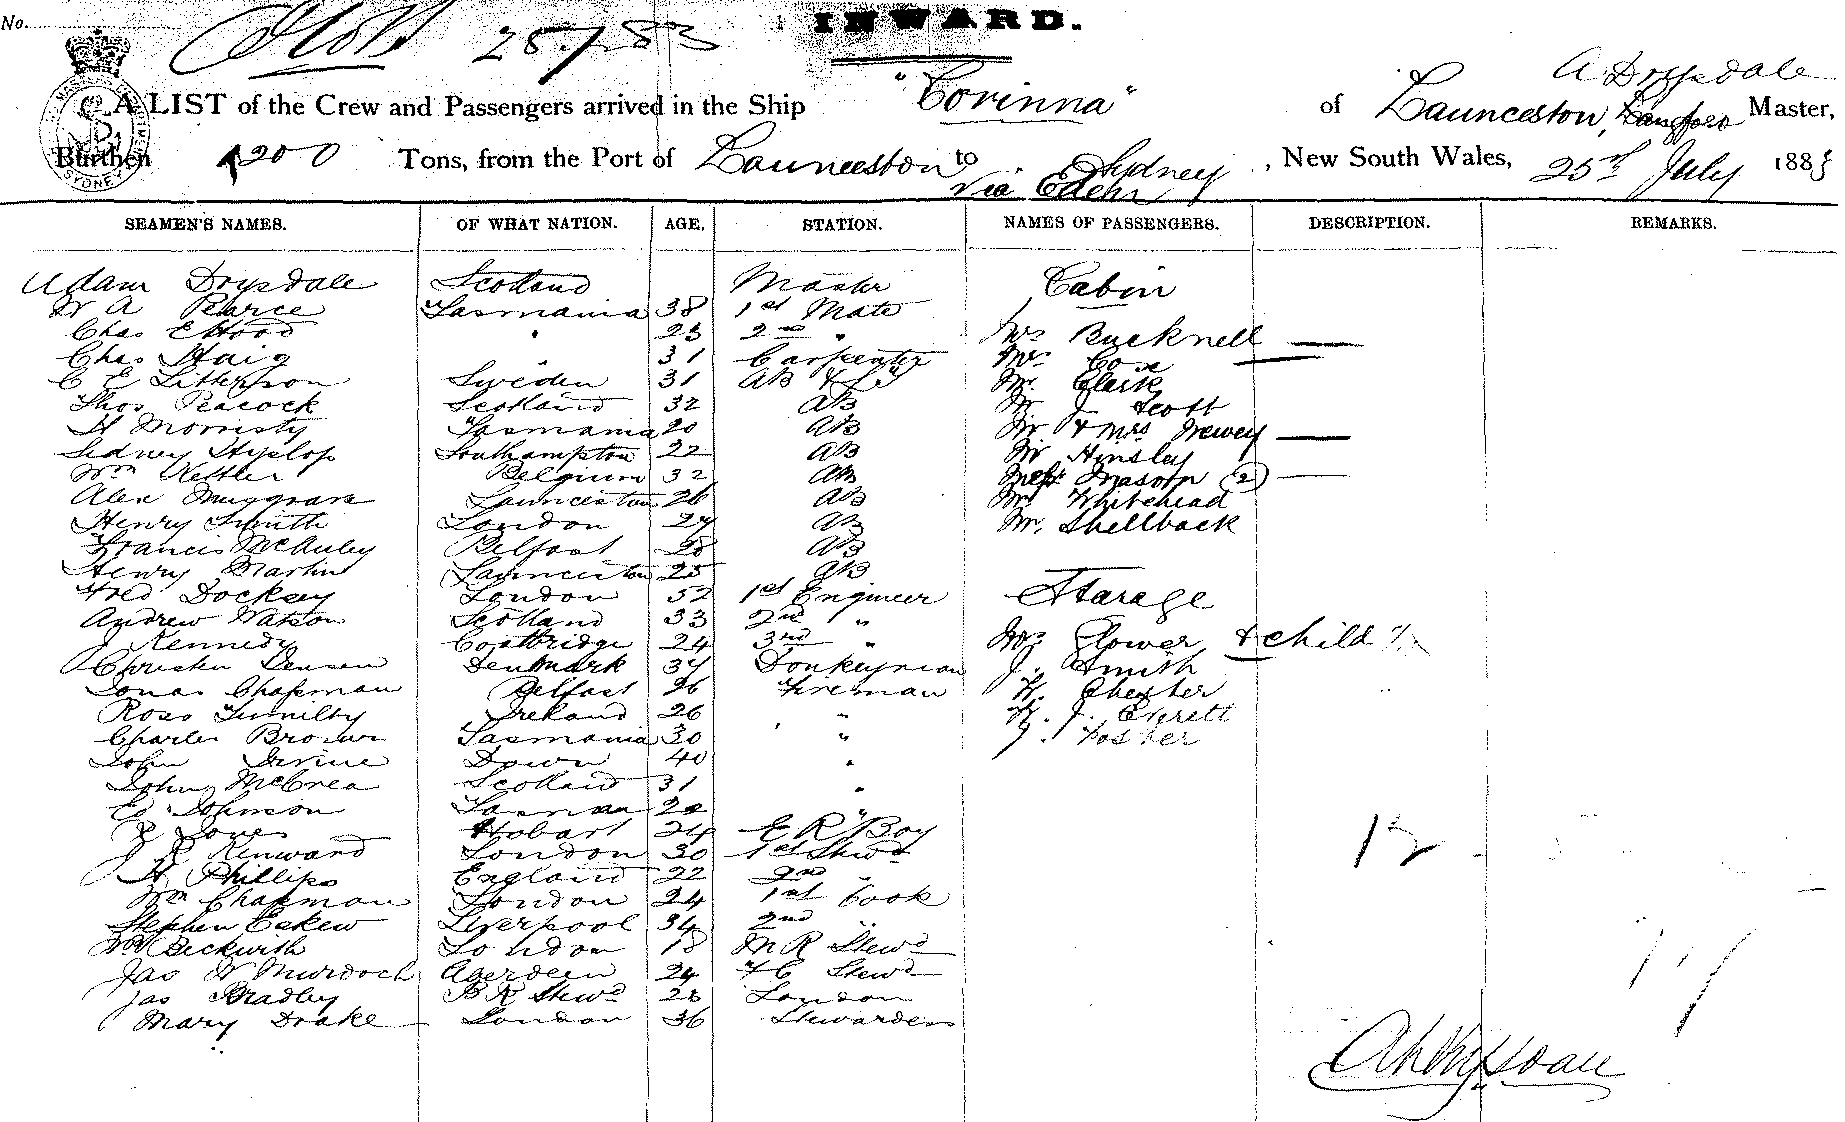 No.
25.7.83
INWARD.
A Drysdale
A LIST of the Crew and Passengers arrived in the Ship "Corinna" of Launceston, Master,
Burthen 1200 Tons, from the Port of Launceston to Sydney, New South Wales, 25th July 188
via Eden
SEAMEN'S NAMES. OF WHAT NATION. AGE. STATION. NAMES OF PASSENGERS. DESCRIPTION. REMARKS.
Adam Drysdale Scotland Master Cabin
W A Pearce Tasmania 38 1st Mate
Chas E Hood " 23 2nd " Mrs Bucknell
Chas Haig " 31 Carpenter Mrs Cox
C E Sweden 31 AB & Mr. Clark
Thos Peacock Scotland 32 AB Mr J Scott
H Morrisby Tasmania 20 AB Mr & Mrs Trewey
Sidney Hyslop Southampton 22 AB Mr Hinsley
Wm Belgium 32 AB Messrs Mason (2)
Alex Musgrave Launceston 26 AB Mr Whitehead
Henry Smith London 27 AB Mr. Shellback
Francis McAuley Belfast 28 AB
Henry Martin Launceston 25 AB
Fred Docksey London 52 1st Engineer Starage
Andrew Watson Scotland 33 2nd "
J Kennedy Coatbridge 24 3rd " Mrs Flower & child
Christen Jensen Denmark 34 Donkeyman J. Smith
Jonas Chapman Belfast 26 Fireman H. Chester
Ross Ireland 26 " H. J. Everett
Charles Brown Tasmania 30 " J. Foster
John Irvine Down 40 "
John McCrea Scotland 31 "
Johnson Tasman "
Jones Hobart 24 E R Boy
J R Kenward London 30 1st Stewd
H Phillips England 22 2nd "
Wm Chapman London 24 1st Cook
Stephen Eskew Liverpool 34 2nd "
Wm Beckwith London 18 M R Stewd
Jas W Murdoch Aberdeen 24 F C Stewd
Jas Bradley B R Stewd 28 London
Mary Drake London 36 Stewardess
12